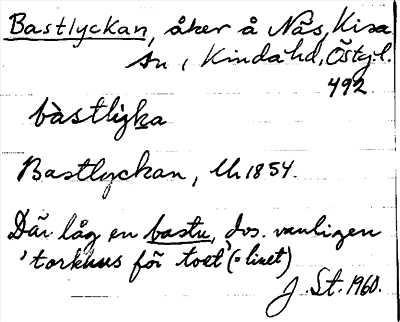 Bastlyckan, åker å Näs, Kisa
sn, Kinda hd, Östgl.
492
bàstligka
Bastlyckan, Uh 1854.
Där låg en bastu, dvs. vanligen
'torkhus för toet (= linet)
J. St. 1960.